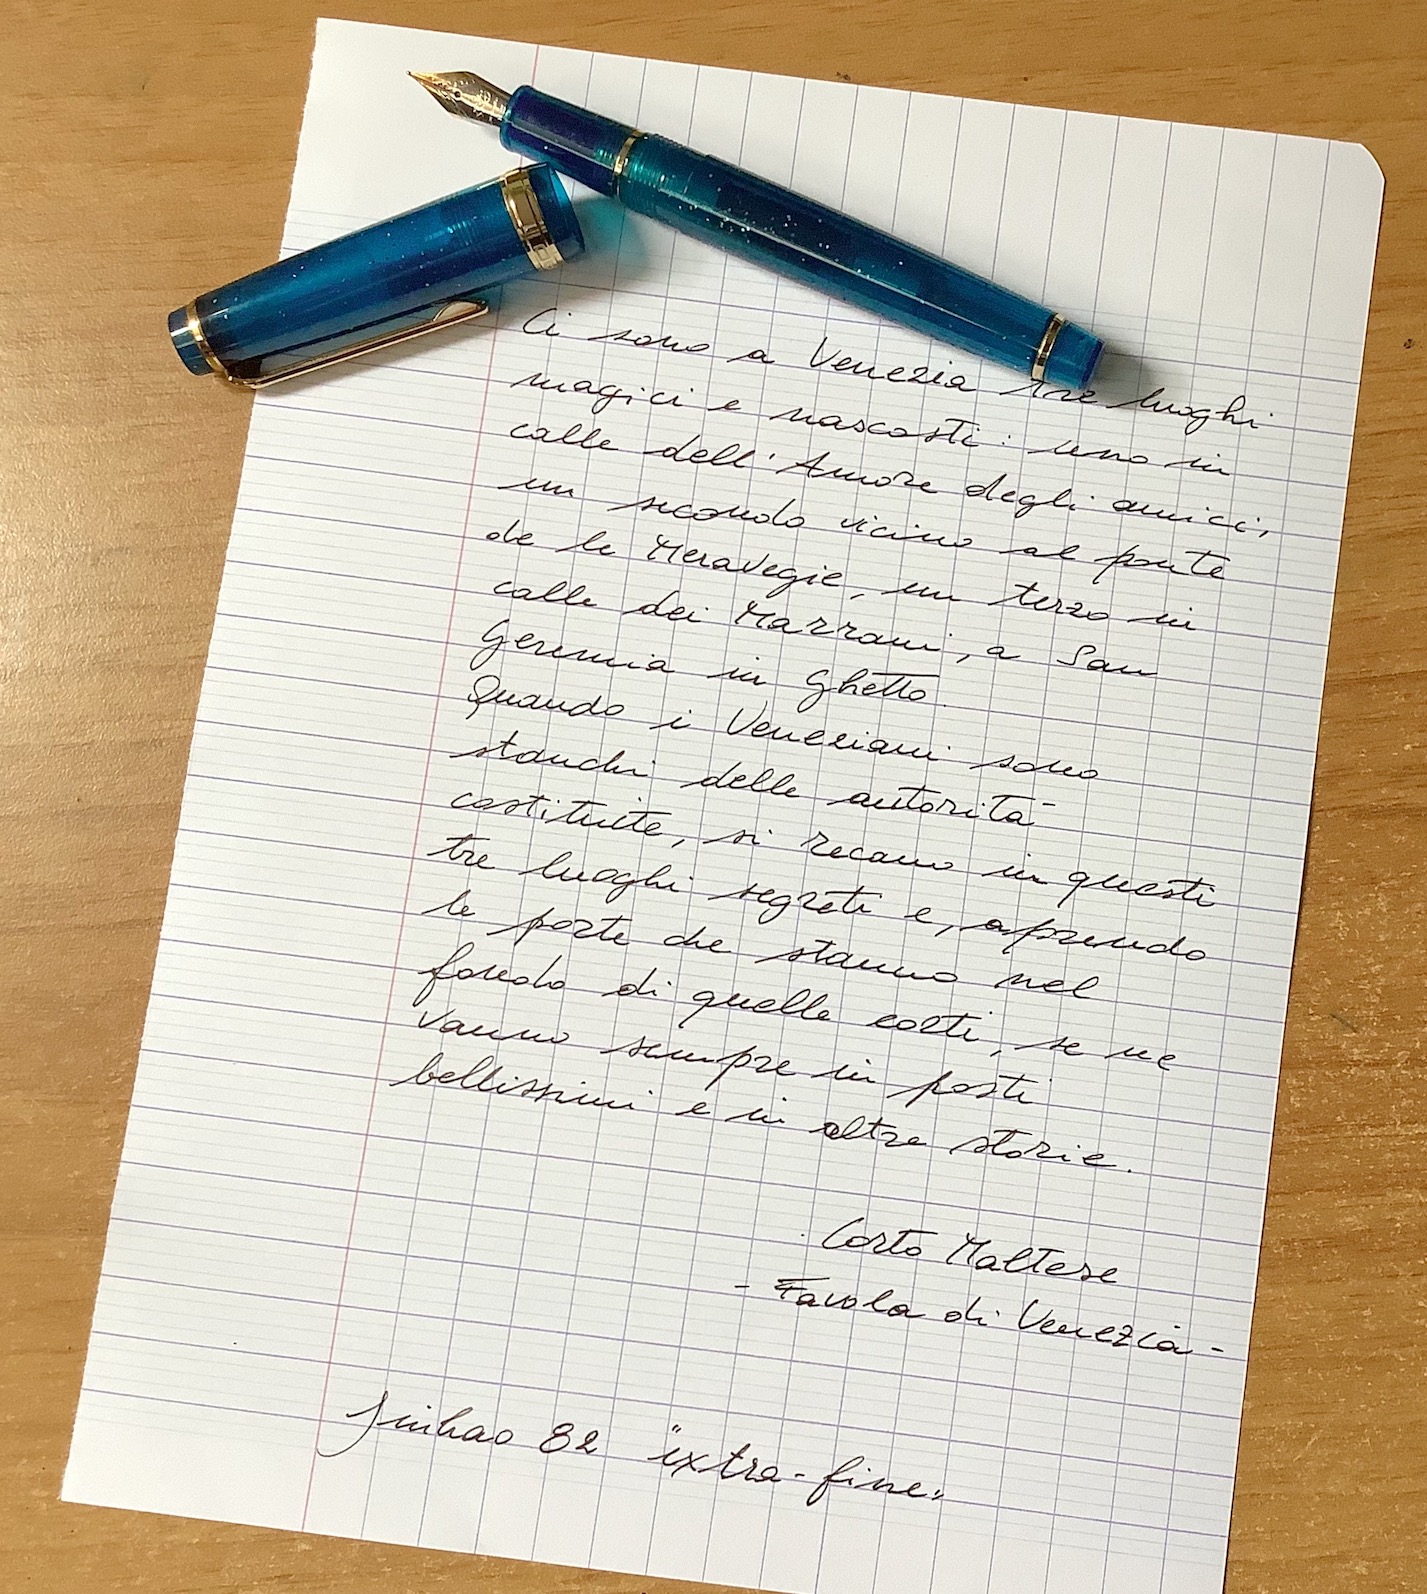 Ci sono a Venezia tre luoghi
magici e nascosti: uno in
calle dell'Amore degli amici,
un secondo vicino al ponte
de le Meravegie, un terzo in
calle dei Marrani, a San
Geremia in Ghetto.
Quando i Veneziani sono
stanchi delle autorità
costituite, si recano in questi
tre luoghi segreti e, aprendo
le porte che stanno nel
fondo di quelle corti, se ne
vanno sempre in posti
bellissimi e in altre storie.
Corto Maltese
- Favola di Venezia -
Jinhao 82 "extra-fine"